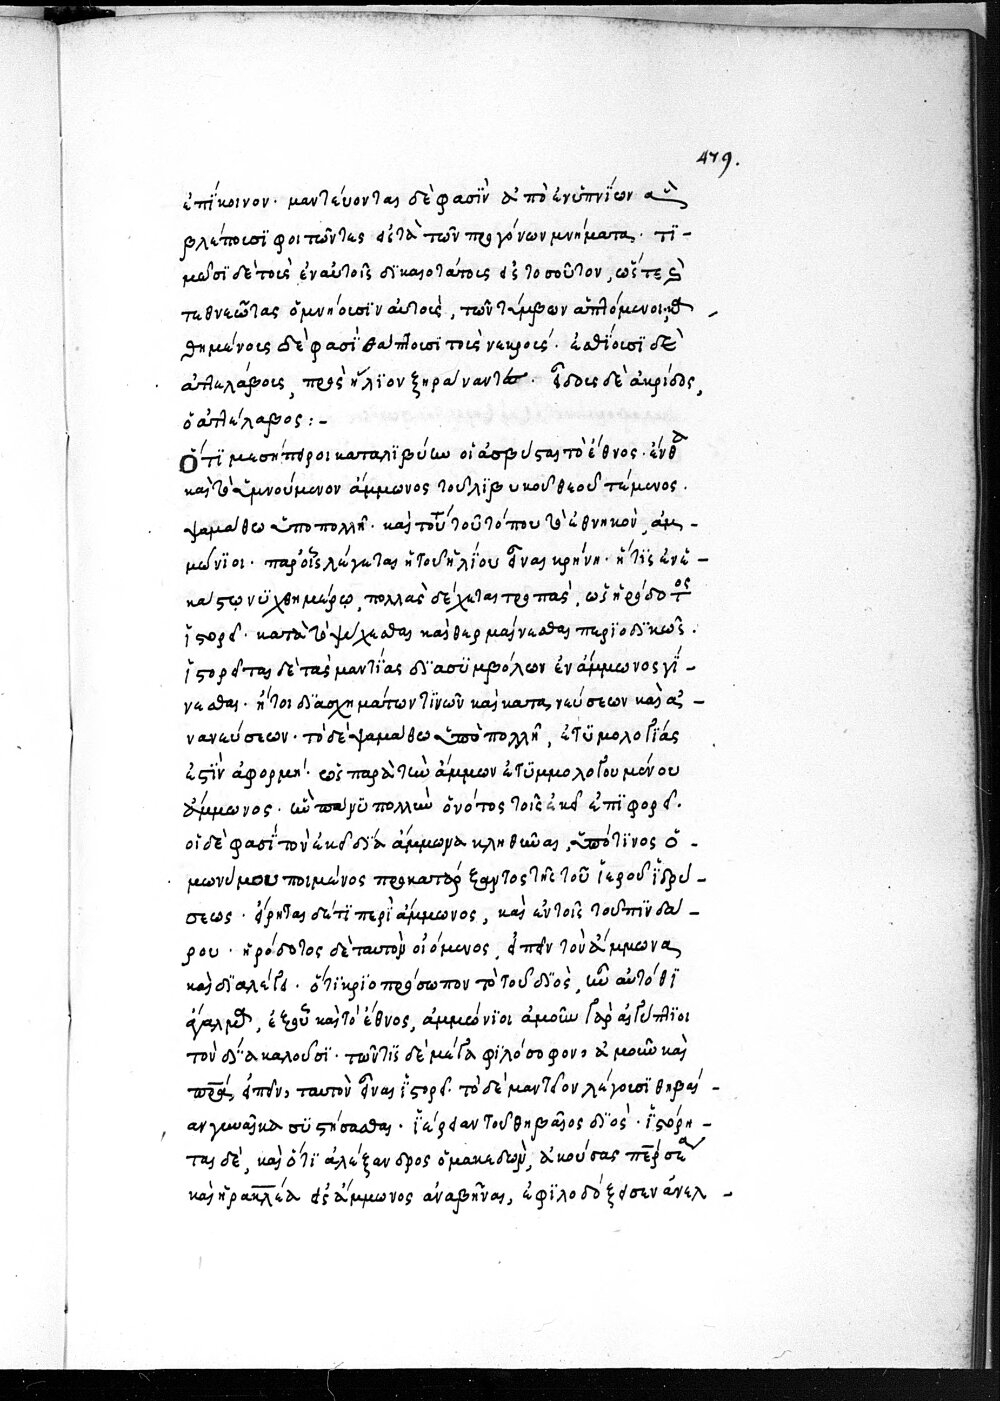 479.
ἐπίκοινον· μαντεύονται δὲ φασὶν ἀπὸ ἐνυπνίων ἃ
βλέπουσι φοιτῶντες εἰς τὰ τῶν προγόνων μνήματα· τι-
μῶσι δὲ τοὺς ἐν αὐτοῖς δικαιοτάτους εἰς τοσοῦτον, ὥστε καὶ
τεθνεῶτας ὀμνύουσιν αὐτοὺς, τῶν τύμβων ἁπτόμενοι·
θημένους δὲ φασὶ θάπτουσι τοὺς νεκρούς· ἐσθίουσι δὲ
ἀττελάβους, πρὸς ἥλιον ξηραίνοντες· εἶδος δὲ ἀκρίδος,
ὁ ἀττέλαβος:-
Ὅτι μεσήποροι κατὰ λιβύην οἱ ἀσβύσται τὸ ἔθνος· ἔνθα
καὶ τὸ ὑμνούμενον ἄμμωνος τοῦ λιβυκοῦ θεοῦ τέμενος·
ψαμάθῳ ὑπὸ πολλῇ· καὶ τούτου τοῦ τόπου τὸ ἐθνικὸν, ἀμ-
μώνιοι· παρ' οἷς λέγεται ἡ τοῦ ἡλίου εἶναι κρήνη· ἥτις ἐν ἑ-
κάστῳ νυχθημέρῳ, πολλὰς δέχεται τροπάς, ὡς ἡρόδοτος
ἱστορεῖ· κατὰ τὸ ψύχεσθαι καὶ θερμαίνεσθαι περιοδικῶς·
ἱστορεῖται δὲ τὰς μαντείας διὰ συμβόλων ἐν ἄμμωνος γί-
νεσθαι· ἤτοι διὰ σχημάτων τινῶν καὶ κατανεύσεων καὶ ἀ-
νανεύσεων· τὸ δὲ ψαμάθῳ ὑπὸ πολλῇ, ἐτυμολογίας
ἐστὶν ἀφορμή· ὡς παρὰ τὴν ἄμμον ἐτυμμολογουμένου
ἄμμωνος· πολλὴν ὄντος τοῖς ἐκεῖ ἐπιφορεῖ·
οἱ δὲ φασὶ τὸν ἐκεῖ δία ἄμμωνα κληθῆναι, ὑπό τινος ὁ-
μωνύμου ποιμένος προκατάρξαντος τῆς τοῦ ἱεροῦ ἱδρύ-
σεως· εἴρηται δέ τι περὶ ἄμμωνος, καὶ ἐν τοῖς τοῦ πινδά-
ρου· ἡρόδοτος δὲ ταυτὸν οἰόμενος, εἰπεῖν τὸν ἄμμωνα
καὶ δία λέγει· ὅτι κριοπρόσωπον τὸ τοῦ διὸς, ἦν αὐτόθι
ἄγαλμα, ἐξ οὗ καὶ τὸ ἔθνος, ἀμμώνιοι ἀμοῦν γὰρ αἰγύπτιοι
τὸν δία καλοῦσι· τῶν τις δὲ μέγα φιλόσοφον, ἀμοῦν καὶ
εἰπεῖν, ταυτὸν εἶναι ἱστορεῖ· τὸ δὲ μαντεῖον λέγουσι θηβαί-
αν γυναῖκα συστήσασθαι· ἱέρειαν τοῦ θηβαῖος διὸς· ἱστόρη-
ται δὲ, καὶ ὅτι ἀλέξανδρος ὁ μακεδὼν, ἀκούσας περσέα
καὶ ἡρακλέα εἰς ἄμμωνος ἀναβῆναι, ἐφιλοδόξησεν ἀνελ-